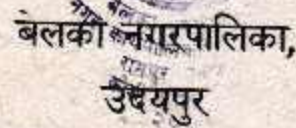 बेलका नगरपालिका,
उदयपुर